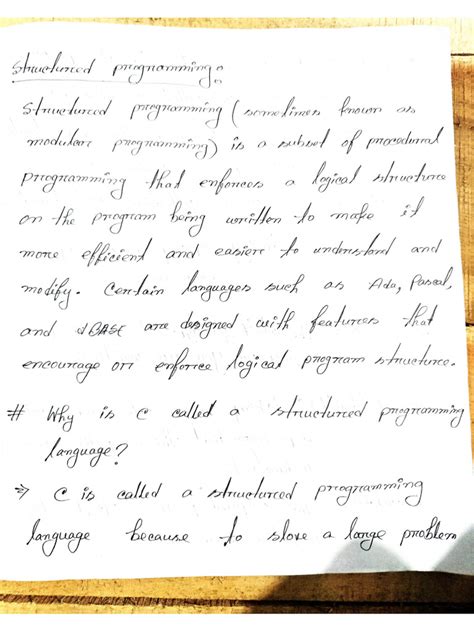 Structured programming:
Structured programming (sometimes known as
modular programming) is a subset of procedural
programming that enforces a logical structure
on the program being written to make it
more efficient and easier to understand and
modify. Certain languages such as Ada, Pascal,
and dBASE are designed with features that
encourage or enforce logical program structure.
# Why is C called a structured programming
language?
⇒ C is called a structured programming
language because to slove a large problem